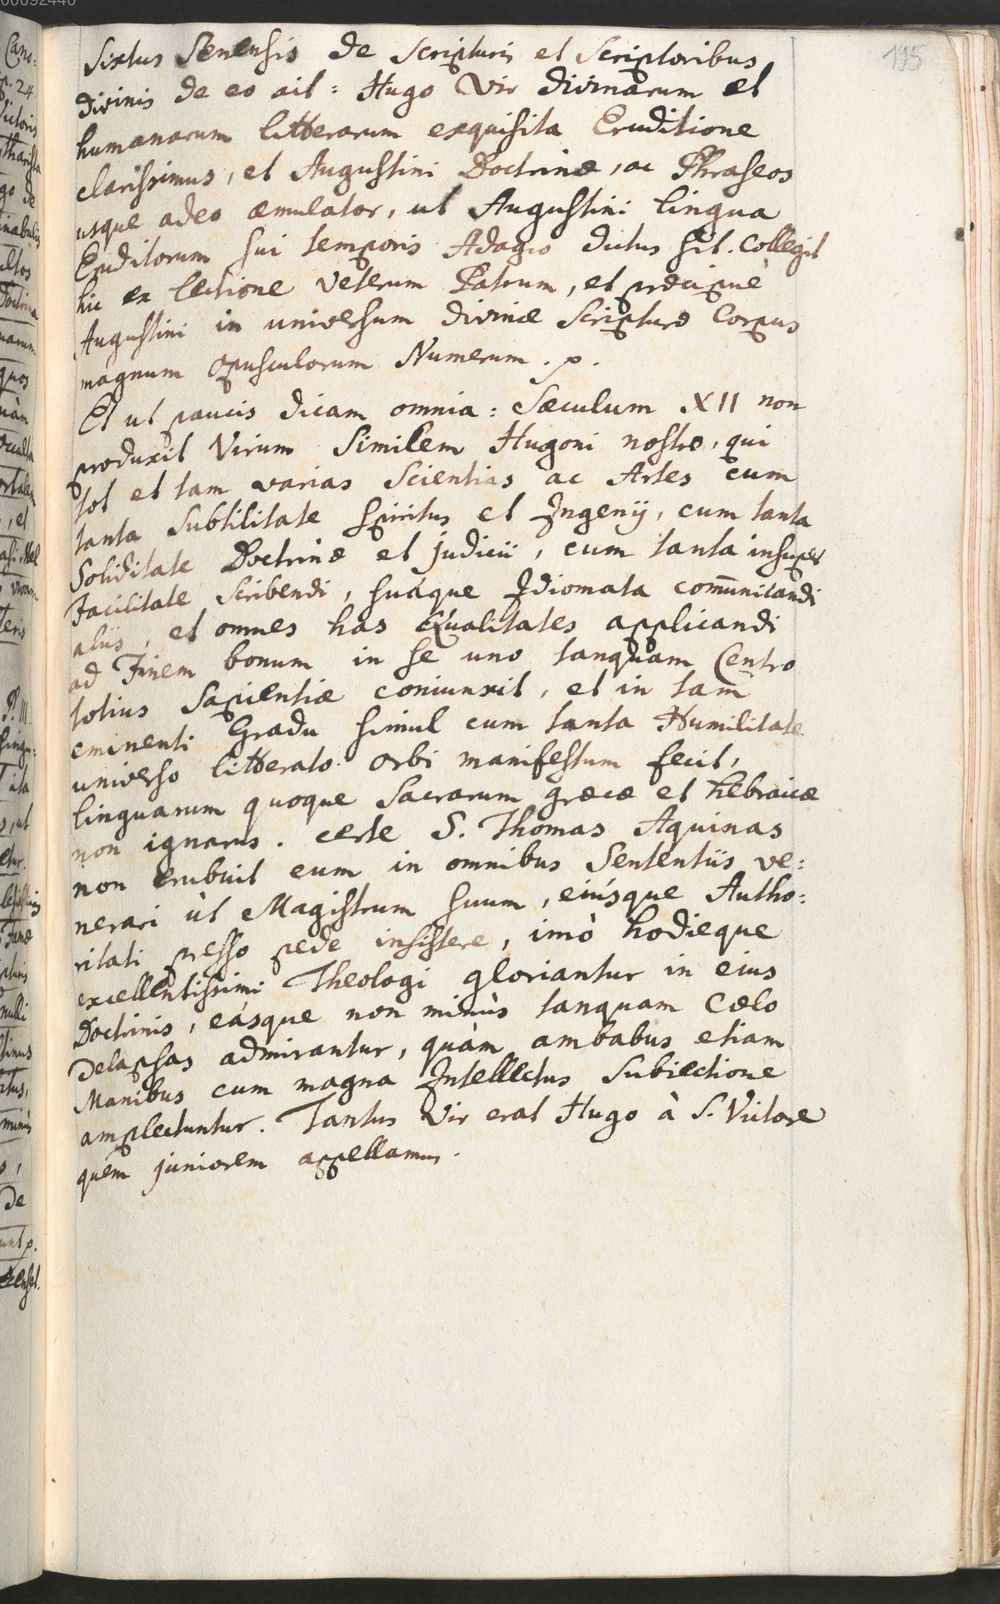 195
Sixtus Senensis de Scripturis et Scriptoribus
divinis de eo ait: Hugo Vir divinarum et
humanarum litterarum exquisita Eruditione
clarissimus, et Augustini Doctrinæ, ac Phraseos
usque adeo æmulator, ut Augustini lingua
Eruditorum sui temporis Adagio dictus sit. Collegit
hic ex lectione veterum Patrum, et præcipuè
Augustini in universum divinæ Scripturæ Corpus
magnum opusculorum Numerum. p.
Et ut paucis dicam omnia: Sæculum XII non
produxit Virum Similem Hugoni nostro, qui
tot et tam varias Scientias ac Artes cum
tanta Subtilitate Spiritus et Ingenij, cum tanta
Soliditate Doctrinæ et judicii, cum tanta insuper
Facilitate Scribendi, suáque Idiomata com̄unicandi
aliis, et omnes has Qualitates applicandi
ad Finem bonum in se uno tanquam Centro
totius Sapientiæ coniunxit, et in tam
eminenti Gradu simul cum tanta Humilitate
universo litterato orbi manifestum fecit,
linguarum quoque Sacrarum græcæ et hebraicæ
non ignarus. certe S. Thomas Aquinas
non erubuit eum in omnibus Sententiis ve:
nerari ùt Magistrum suum, eiúsque Autho:
ritati presso pede insistere, imò hodieque
excellentissimi Theologi gloriantur in eius
Doctrinis, eásque non minùs tanquam Cœlo
delapsas admirantur, quàm ambabus etiam
Manibus cum magna Intellectus Subiectione
amplectuntur. Tantus Vir erat Hugo à S. Victore
quem juniorem appellamus.